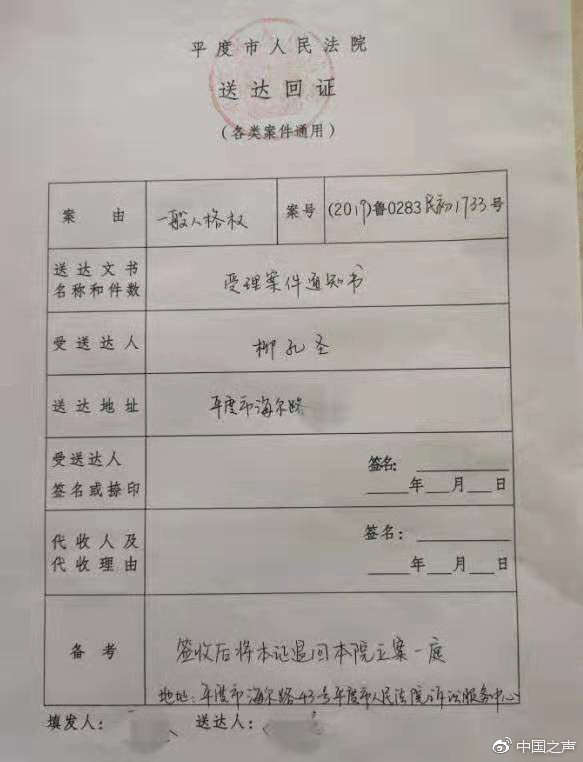 平度市人民法院
送达回证
(各类案件通用)
案由 一般人格权 案号 (2019)鲁0283民初1733号
送达文书
名称和件数 受理案件通知书
受送达人 柳孔圣
送达地址 平度市海尔路
受送达人 签名:
签名或捺印 年 月 日
代收人及 签名:
代收理由 年 月 日
备考 签收后将本证退回本院立案一庭
地址:平度市海尔路43号平度市人民法院诉讼服务中心
填发人: 送达人:
中国之声